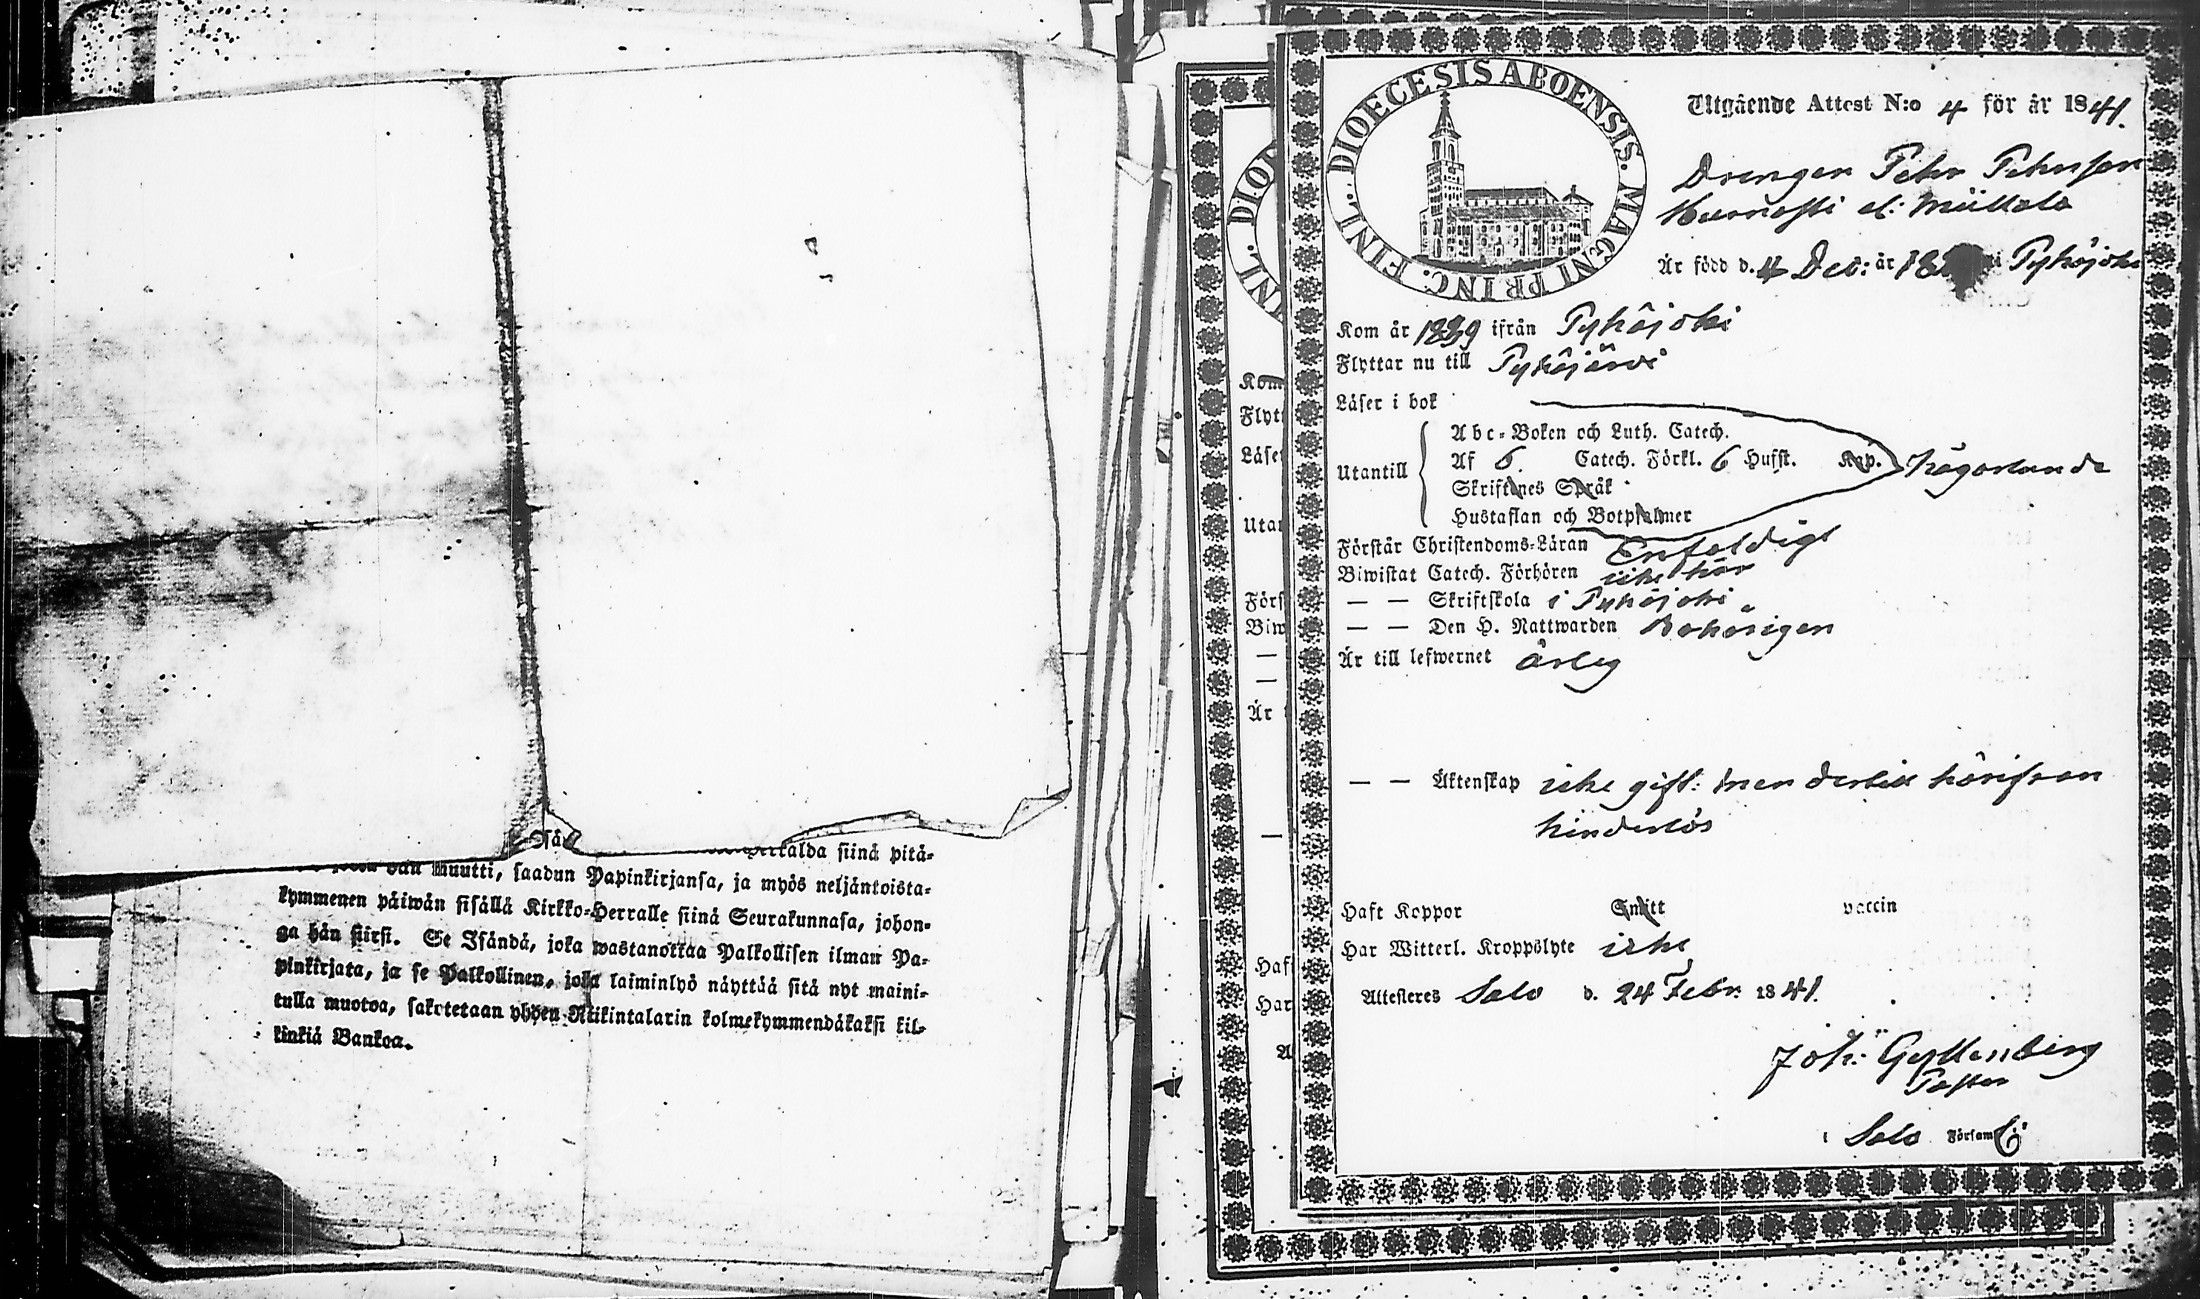 talda siinä pitä-
muutti, saadun Papinkirjansa, ja myös neljäntoista-
kymmenen päiwän sisällä Kirkko-Herralle siinä Seurakunnasa, johon-
ga hän siirsi. Se Isändä, joka wastanottaa Palkollisen ilman Pa-
pinkirjata, ja se Palkollinen, joka laiminlyö näyttää sitä nyt maini-
tulla muotoa, sakotetaan yhden Riikintalarin kolmekymmendäkaksi kil-
linkiä Bankoa.
DIOECESIS ABOENSIS. MAGNI PRINC. FINL.
Utgående Attest N:o 4 för år 1841.
Drengen Pehr Pehrsson
el: Mükkälä
Är född d. 4 Dec: år 18 i Pyhäjoki
Kom år 1839 ifrån Pyhäjoki
Flyttar nu till Pyhäjärvi
Läser i bok
Abc-Boken och Luth. Catech.
Utantill Af 6. Catech. Förkl. 6 Husst. Kap. någorlunda
Skriftenes Språk
Hustaflan och Botpsalmer
Förstår Christendoms-Läran Enfaldigt
Biwistat Catech. Förhören icke här
— — Skriftskola i Pyhäjoki
— — Den H. Nattwarden Behörigen
Är till lefwernet ärlig
— — Äktenskap icke gift: men dertill härifrån
hinderlös
Haft Koppor Smitt vaccin
Har Witterl. Kroppslyte icke
Attesteres Salo d. 24 Febr. 1841.
Joh: Gyllenberg
Pastor
i Salo Församl:
DIOE
INL.
Kom
Flytt
Läser
Utan
Förs
Biw
—
—
Är t
—
Haf
Har
A